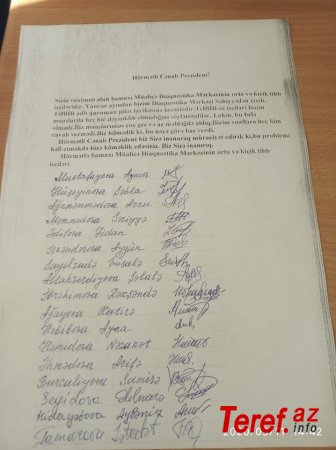 Hörmətli Cənab Prezident!
Sizə yazırıq olan Şamaxı Müalicə Diaqnostika Mərkəzinin orta və kiçik tibb
işçiləridir. Yanvar ayından bizim Diaqnostika Mərkəzi Səhiyyədən çıxıb,
TƏBİB adlı qurumun tabeliyinə keçmişdir. TƏBİB-in işçiləri bizim
maaşlarda heç bir dəyişiklik olmadığını söyləmişdilər. Lakin, bu belə
olmadı. Biz maaşlarımızı çox gec və az məbləğdə aldıq. Bizim suallara heç kim
cavab vermədi. Biz bilmədik ki, bu nəyə görə baş verdi.
Hörmətli Cənab Prezident biz Sizə inanaraq müraciət edirik ki, bu problemi
həll etməkdə bizə köməklik edəsiniz. Biz Sizə inanırıq.
Hörmətlə Şamaxı Müalicə Diaqnostika Mərkəzinin orta və kiçik tibb
işçiləri.
Mustafayeva Aynur
Hüseynova Şəhla
Ağaməmmədova Arzu
Məmmədova Səriyyə
Ədilova Fidan
İsgəndərova Aygün
Allahverdiyeva Şəlalə
İbrahimova Rəxşəndə
Ağayeva Xatirə
Həbibova Ayna
Həmidova Nəzakət
Əhmədova Arifə
Burcəliyeva Samirə
Seyidova Gülnarə
Hidayətova
Tamdrova
Teref.az
info